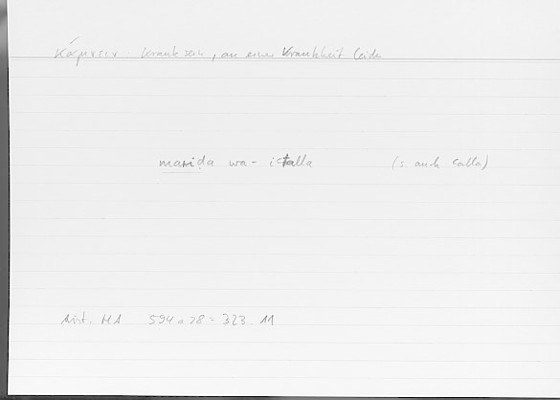 κάμνειν krank sein, an einer Krankheit leiden
mariḍa wa-iʿtalla (: auch ʿalla)
Arist. HA 594 a 28 = 323.11